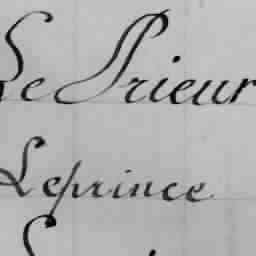 Le Prieur
Leprince